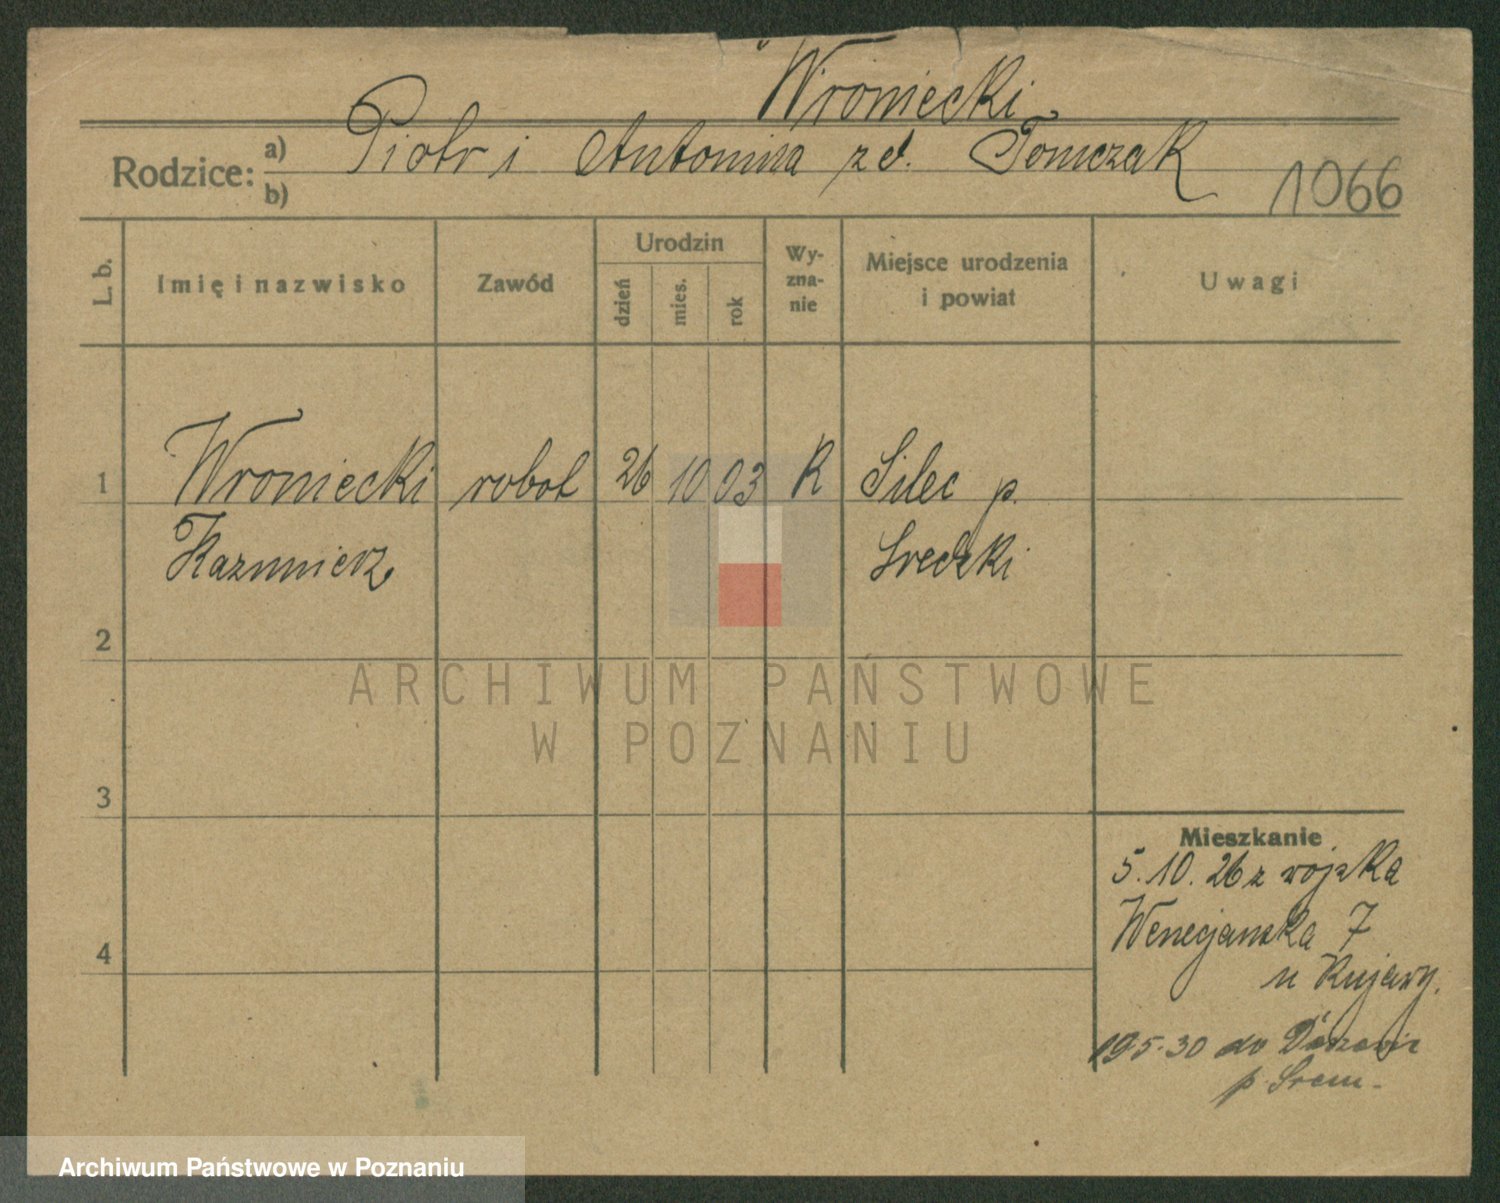 Wroniecki
Rodzice: a) Piotr i Antonina z d. Tomczak
b)
1066
L. b.
Imię i nazwisko
Zawód
Urodzin
dzień
mies.
rok
Wy-
zna-
nie
Miejsce urodzenia
i powiat
Uwagi
1 Wroniecki robot 26 10 03 R Silec p.
Kazimierz Sredzki
2
3
4
Mieszkanie
5.10.26 z wojska
Wenecjanska 7
u Kujawy.
19.5.30 do
p. Srem.
ARCHIWUM PAŃSTWOWE
W POZNANIU
Archiwum Państwowe w Poznaniu